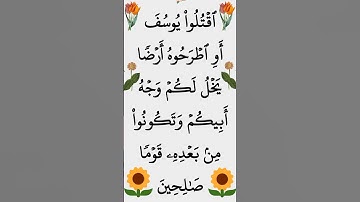 ٱقۡتُلُواْ يُوسُفَ
أَوِ ٱطۡرَحُوهُ أَرۡضٗا
يَخۡلُ لَكُمۡ وَجۡهُ
أَبِيكُمۡ وَتَكُونُواْ
مِنۢ بَعۡدِهِۦ قَوۡمٗا
صَٰلِحِينَ